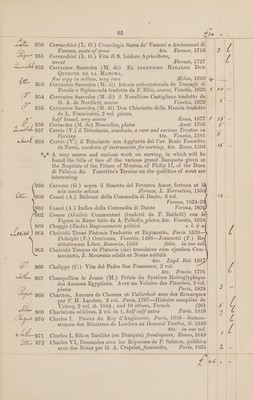 62
950 Cerracchini (L. G.) Cronologia Sacra de' Vescovi e Arcivescovi di
Firenze, coats of arms 4to. Firenze, 1716
951 Cerracchini (L. G.) Vita di S. Isidoro Agricoltore,
uncut Firenze, 1727
952 Cervantes Saavedra (M. de) EL INGENIOSO HIDALGO DON
QUIXOTE DE LA MANCHA,
fine copy in vellum, very rare Milan, 1610
953 Cervantes Saavedra (M. di) Istoria settentrionale de Travagli di
Persile e Sigismonda tradotta da F. Ellio, scarce, Venetia, 1626
954 Cervantes Saavedra (M. di) il Novelliere Castigliano tradotto da
G. A. de Novilieri, scarce Venetia, 1629
955 Cervantes Saavedra (M. di) Don Chisciotte della Mancia tradotto
da L. Franciosini, 2 vol. plates,
half bound, very scarce Roma, 1677
956 Cervantes (M. de) Nouvelles, plates Amst. 1705
957 Cervio (V.) il Trinciante, woodcuts, a rare and curious Treatise on
Carving 4to. Venetia, 1581
958 Cervio (V.) il Trinciante con Aggiunta del Cav. Reale Fusoritto
da Narni, woodcuts of instruments for carving, 4to. Roma, 1593
*** A very scarce and curious work on carving, in which will be
found the bills of fare of the various grand Banquets given at
the Nuptials of the Prince of Mantua, of Philip II, of the Duca
di Paliano, &c. Fusoritto's Treatise on the qualities of meat are
interesting.
959 Cervone (G.) sopra il Sonetto del Petrarca Amor, fortuna et la
mia mente schiva Firenze, L. Torrentino, 1550
960 Cesari (A.) Bellezze della Commedia di Dante, 3 vol.
Firenze, 1824-26
961 Cesari (A.) Indice della Commedia di Dante Firenze, 1826
962 Cesare (Giulio) Commentari (tradotti da F. Baldelli) con le
Figure in Rame fatte da A. Palladio, plates, 4to. Venetia, 1618
963 Chaggio (Paolo) Ragionamenti politici s. l. & a.
964 Chalcidii Timæi Platonis Traductio et Explanatio. Paris. 1520—
Philelphi (F.) Orationes. Venetiis, 1496—Jamnotii (P.) Bel-
stitutionum Liber. Bononiæ, 1508 folio. in one vol.
965 Chalcidii Timæus de Platonis (sic) translatus cum ejusdem Com-
mentario, J. Meursius edidit et Notas addidit
4to. Lugd. Bat. 1617
966 Chalippe (C.) Vita del Padre San Francesco, 2 vol.
4to. Praeta 1781
967 Champollion le Jeune (M.) Précis du Système Hiéroglyphique
des Anciens Egyptiens. Avec un Volume des Planches, 2 vol.
plates Paris, 1828
968 Chardon, Amours de Chereas et Callirrhoé avec des Remarques
par P. H. Larcher, 2 vol. Paris, 1797—Histoire complète de
Vidocq, 2 vol. ib. 1844; and 16 others, French (20)
969 Charlatans célèbres, 2 vol. in 1, half calf extra Paris, 1819
970 Charles I. Procez du Roy d'Angleterre, Paris, 1649—Remon-
strance des Ministres de Londres au General Fairfax, ib. 1649
4to. in one vol.
971 Charles I, Eikon Basilike (en Français) frontispiece, Rouen, 1649
972 Charles VI, Demandes avec les Réponses de P. Salmon, publiées
avec des Notes par G. A. Crapelet, facsimiles, Paris, 1833